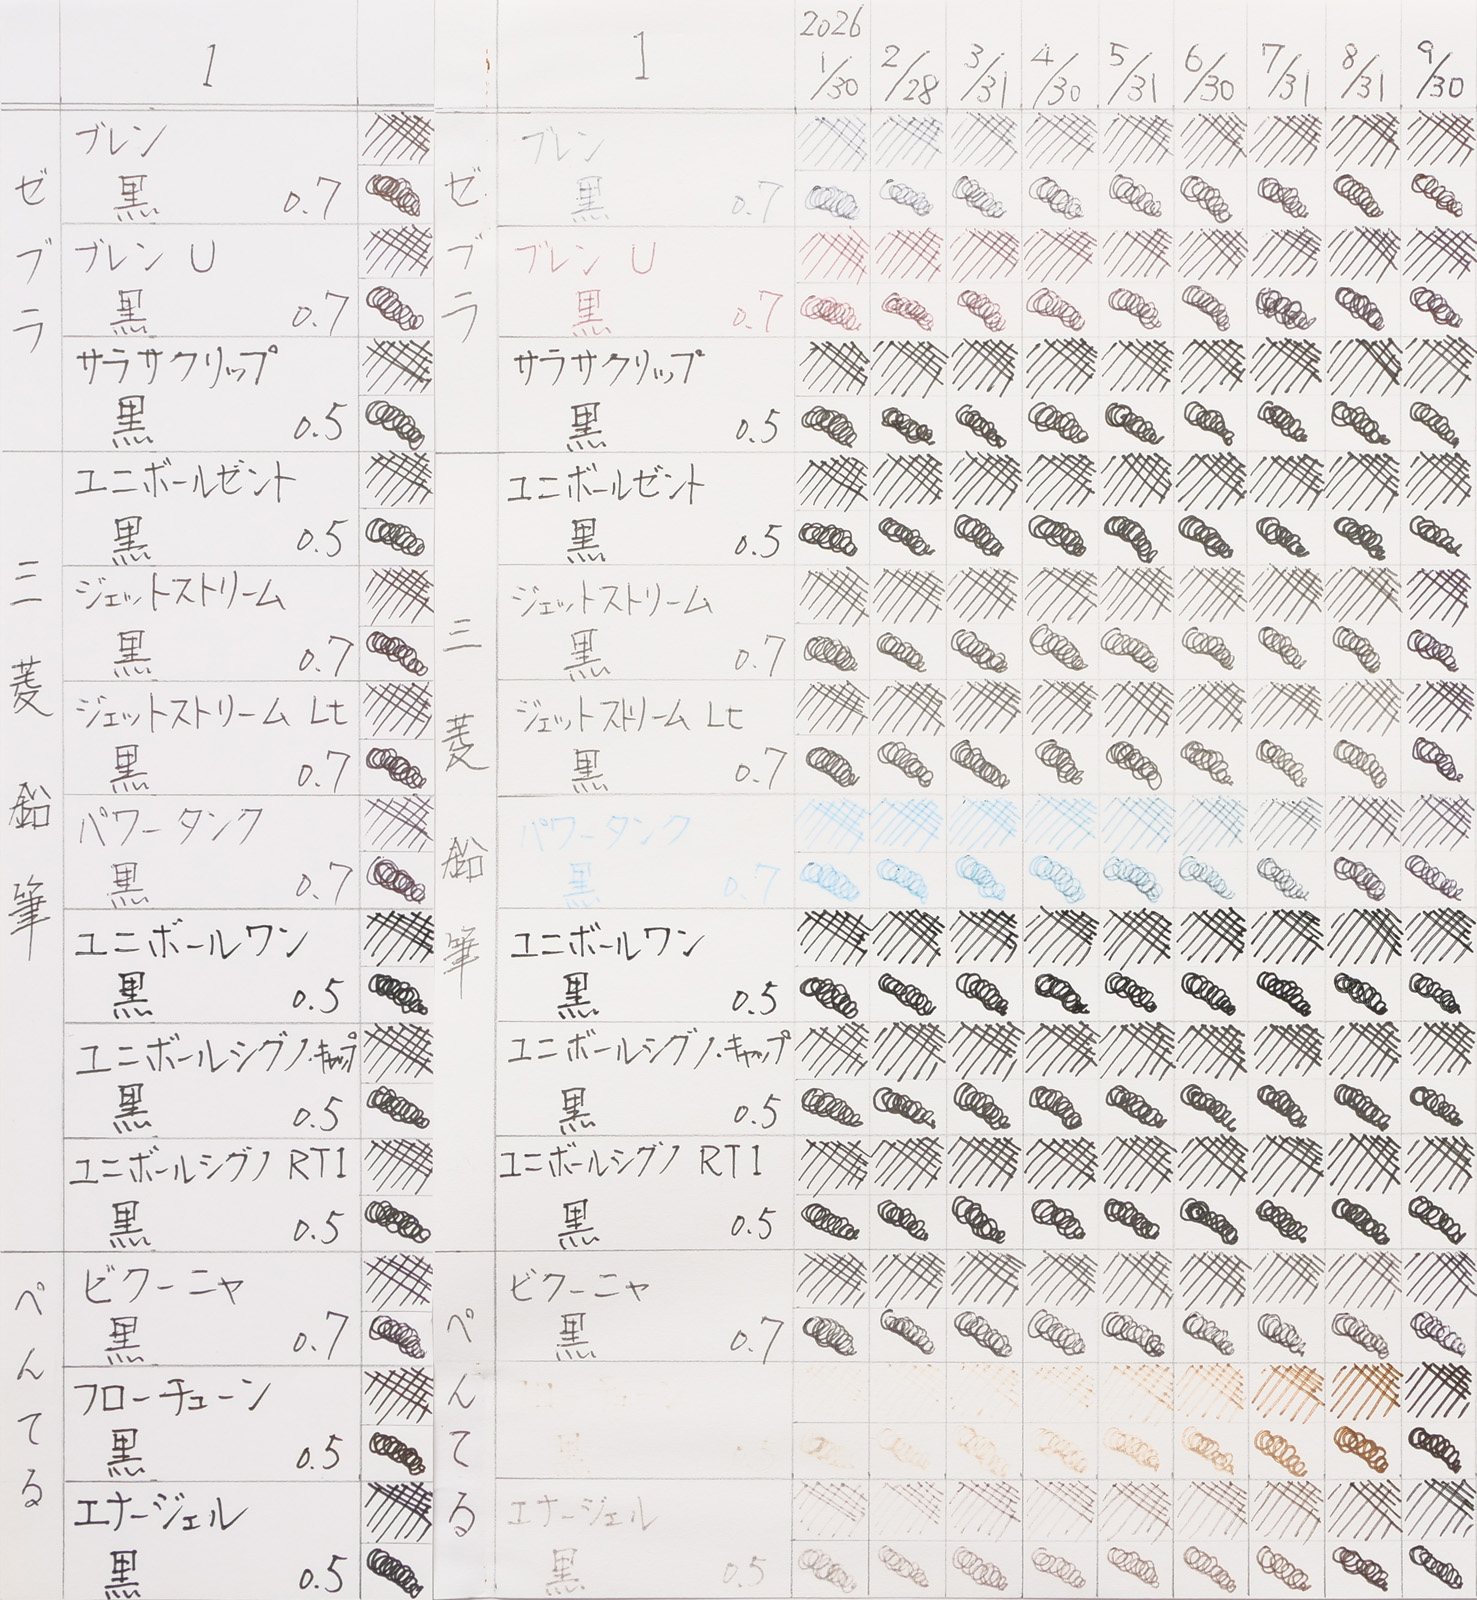 1
ゼブラ
ブレン
黒 0.7
ブレン U
黒 0.7
サラサクリップ
黒 0.5
三菱鉛筆
ユニボールゼント
黒 0.5
ジェットストリーム
黒 0.7
ジェットストリーム Lt
黒 0.7
パワータンク
黒 0.7
ユニボールワン
黒 0.5
ユニボールシグノ・キャップ
黒 0.5
ユニボールシグノ RT1
黒 0.5
ぺんてる
ビクーニャ
黒 0.7
フローチューン
黒 0.5
エナージェル
黒 0.5
1
2026
1/30 2/28 3/31 4/30 5/31 6/30 7/31 8/31 9/30
ゼブラ
ブレン
黒 0.7
ブレン U
黒 0.7
サラサクリップ
黒 0.5
三菱鉛筆
ユニボールゼント
黒 0.5
ジェットストリーム
黒 0.7
ジェットストリーム Lt
黒 0.7
パワータンク
黒 0.7
ユニボールワン
黒 0.5
ユニボールシグノ・キャップ
黒 0.5
ユニボールシグノ RT1
黒 0.5
ぺんてる
ビクーニャ
黒 0.7
黒
エナージェル
黒 0.5